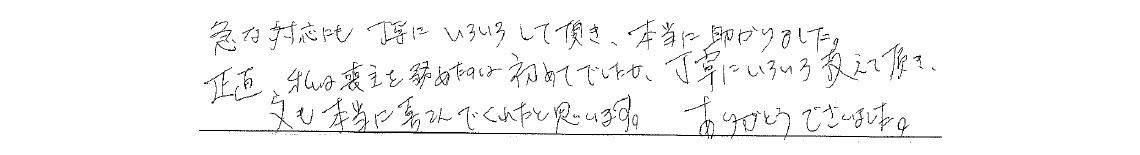 急な対応にも丁寧にいろいろして頂き、本当に助かりました。
正直、私は喪主を務めたのは初めてでしたが、丁寧にいろいろ教えて頂き、
父も本当に喜こんでくれたと思います。 ありがとうございました。